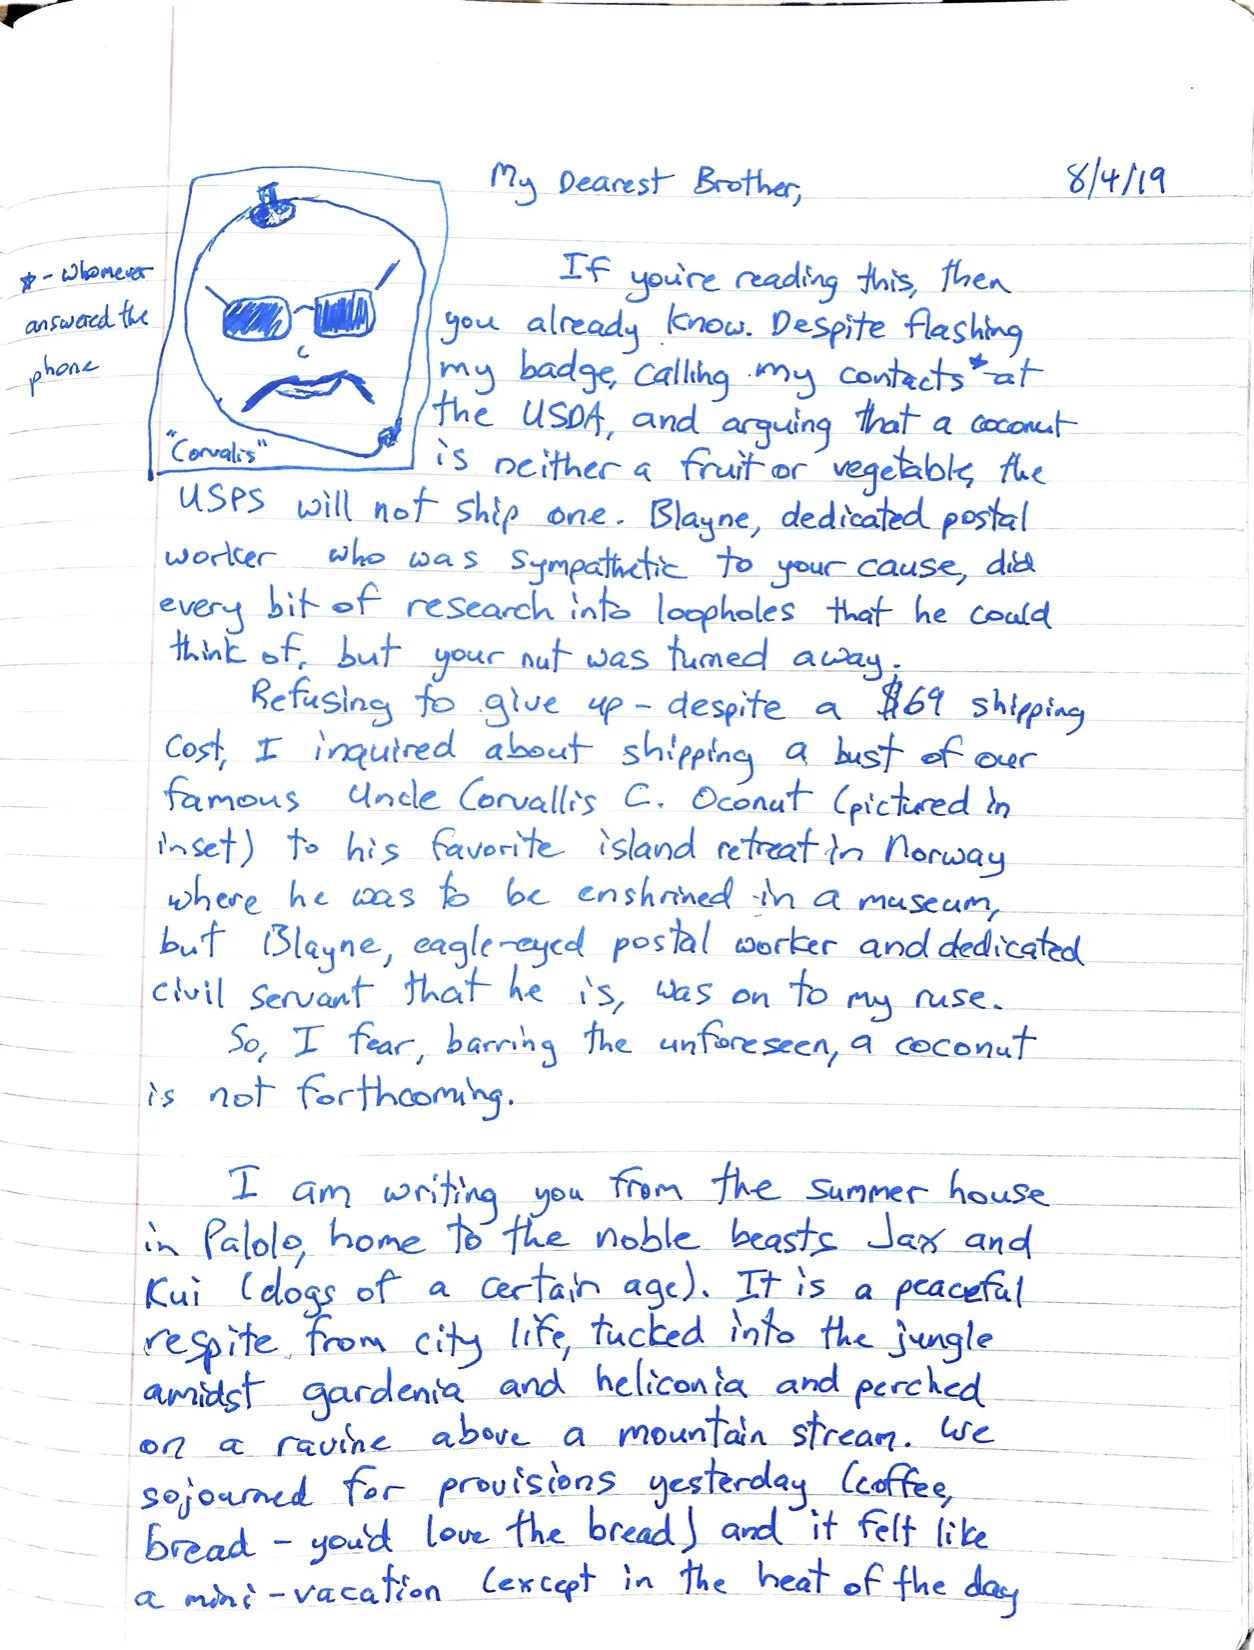 My Dearest Brother,
8/4/19
If you're reading this, then
you already know. Despite flashing
my badge, calling my contacts* at
the USDA, and arguing that a coconut
is neither a fruit or vegetable, the
USPS will not ship one. Blayne, dedicated postal
worker who was sympathetic to your cause, did
every bit of research into loopholes that he could
think of, but your nut was turned away.
Refusing to give up - despite a $69 shipping
cost, I inquired about shipping a bust of our
famous Uncle Corvallis C. Oconut (pictured in
inset) to his favorite island retreat in Norway
where he was to be enshrined in a museum,
but Blayne, eagle-eyed postal worker and dedicated
civil servant that he is, was on to my ruse.
So, I fear, barring the unforeseen, a coconut
is not forthcoming.
I am writing you from the summer house
in Palolo, home to the noble beasts Jax and
Kui (dogs of a certain age). It is a peaceful
respite from city life, tucked into the jungle
amidst gardenia and heliconia and perched
on a ravine above a mountain stream. We
sojourned for provisions yesterday (coffee,
bread - you'd love the bread) and it felt like
a mini-vacation (except in the heat of the day
* - whomever
answered the
phone
"Corvalis"